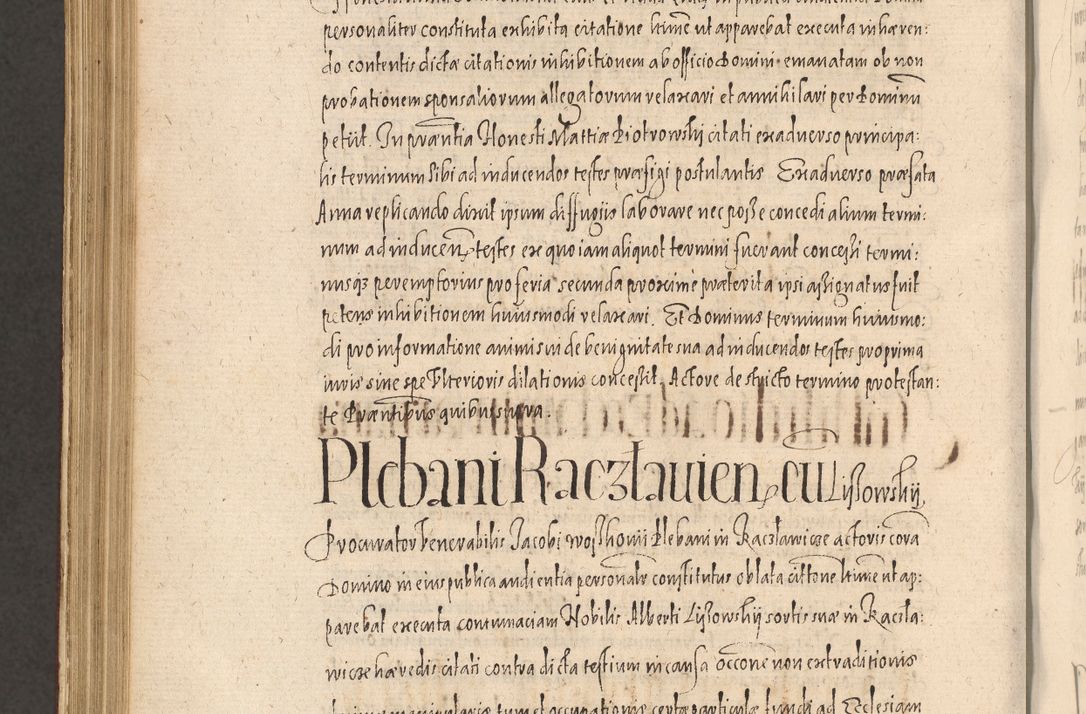 personaliter constituta exhibita citatione ltime ut apparebat executa inhæren:
do contentis dictæ citationis inhibitionem ab officio Domini emanatam ob non
probationem sponsaliorum allegatorum relaxari et annihilari per Dominum
petiit. In præntia Honesti Mattiæ Piotrowskij citati ex adverso principa:
lis terminum sibi ad inducendos testes præfigi postulantis Ex adverso præfata
Anna replicando dixit ipsum diffugiis laborare nec posse concedi alium termi:
num ad inducen testes ex quo iam aliquot termini fuerant concessi termi:
nusq3 peremptorius pro feria secunda proxime præterita ipsi assignatus fuit
petens inhibitionem huiusmodi relaxari. Et Dominus terminum huiusmo:
di pro informatione animi sui de benignitate sua ad inducendos testes pro prima
iuris sine spe Vlterioris dilationis concessit. Actore de stricto termino protestan:
te Præntibus quibus supra.
Plebani Raczlauien cū Lissowskij
Procurator Venerabilis Jacobi Plebani in Raczlawicze actoris cora
Domino in eius publica audientia personalr constitutus oblata cittone ltime ut ap:
parebat executa contumaciam Nobilis Alberti Lissowskij sortis suæ in Raczla:
wicze hæredis citati contra dicta testium in causa occone non extraditionis
manipularis tum et occupationis certæ particulæ fundi ad Ecclesiam